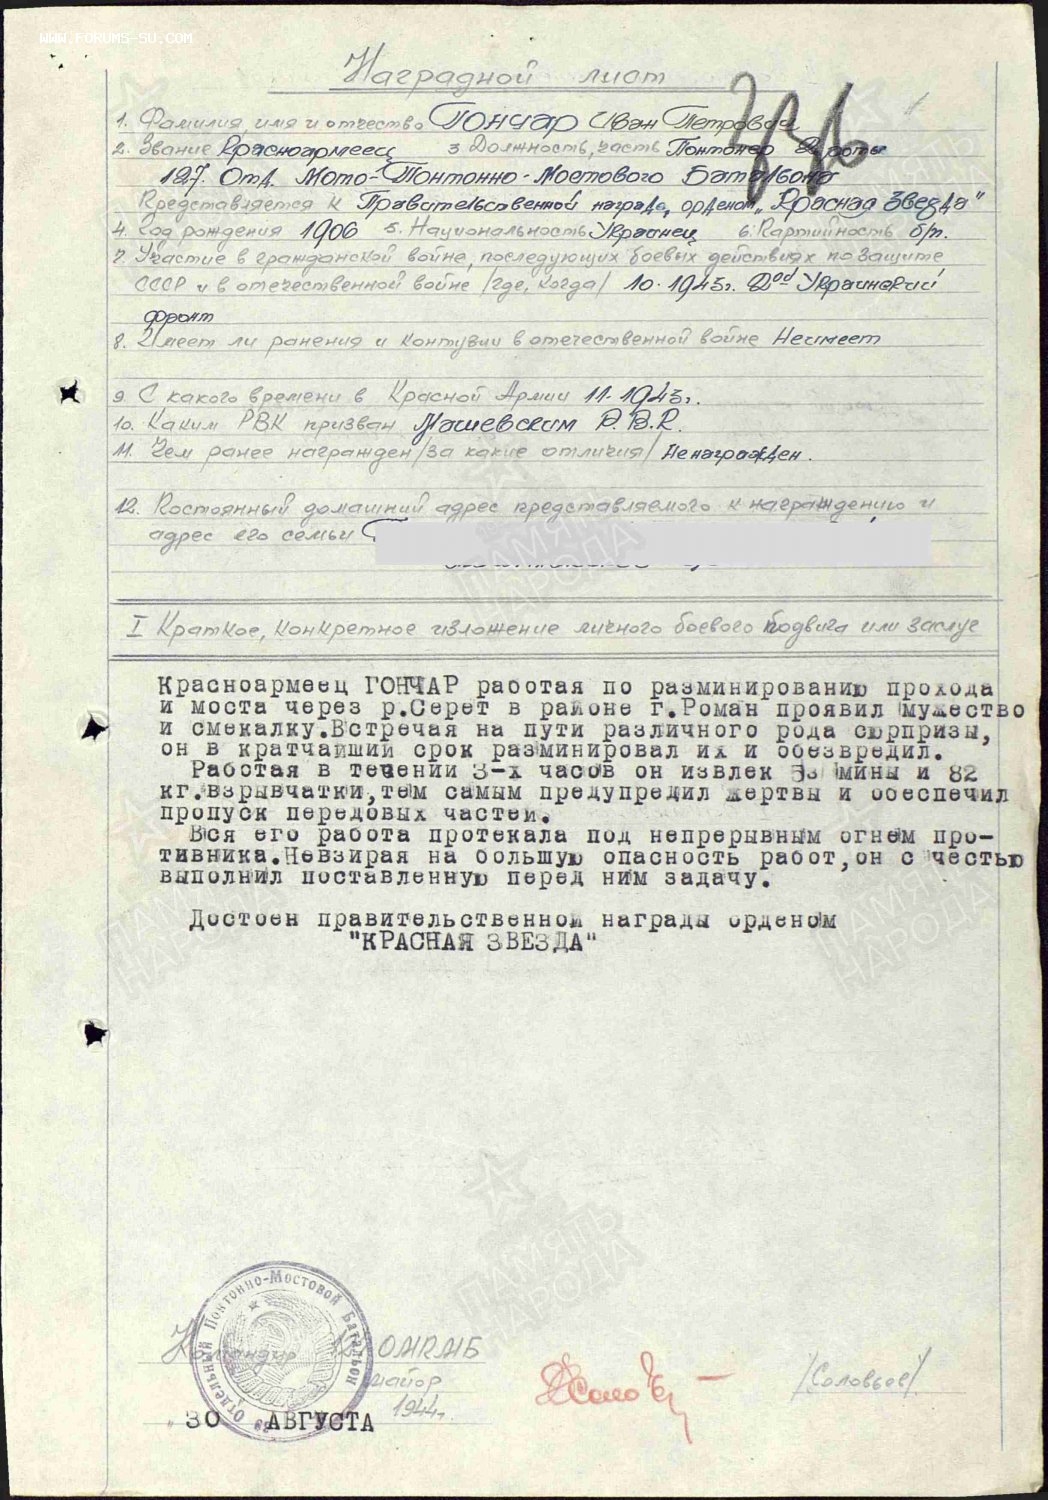 WWW.FORUMS-SU.COM
Наградной лист
1. Фамилия, имя и отчество Гончар Иван Петрович
2. Звание Красноармеец 3 Должность, часть Понтонер роты
127. Отд. Мото-Понтонно-Мостового Батальона
Представляется к Правительственной награде, орденом „Красная Звезда"
4. Год рождения 1906 5. Национальность Украинец 6. Партийность б/п.
7. Участие в гражданской войне, последующих боевых действиях по защите
СССР и в отечественной войне /где, когда/ 10.1943г. 2од Украинский
фронт
8. Имеет ли ранения и контузии в отечественной войне Неимеет
9. С какого времени в Красной Армии 11.1943г.
10. Каким РВК призван Машевским Р.В.К.
11. Чем ранее награжден /за какие отличия/ Ненагражден.
12. Постоянный домашний адрес представляемого к награждению и
адрес его семьи
I Краткое, конкретное изложение личного боевого подвига или заслуг
Красноармеец ГОНЧАР работая по разминированию прохода
и моста через р.Серет в районе г.Роман проявил мужество
и смекалку.Встречая на пути различного рода сюрпризы,
он в кратчайший срок разминировал их и обезвредил.
Работая в течении 3-х часов он извлек 53 мины и 82
кг.взрывчатки,тем самым предупредил жертвы и обеспечил
пропуск передовых частей.
Вся его работа протекала под непрерывным огнем про-
тивника.Невзирая на большую опасность работ,он с честью
выполнил поставленную перед ним задачу.
Достоен правительственной награды орденом
"КРАСНАЯ ЗВЕЗДА"
Отдельный Понтонно-Мостовой Батальон
Командир ОМПМБ
майор /Соловьев/
1944г.
„30 АВГУСТА
ПАМЯТЬ НАРОДА